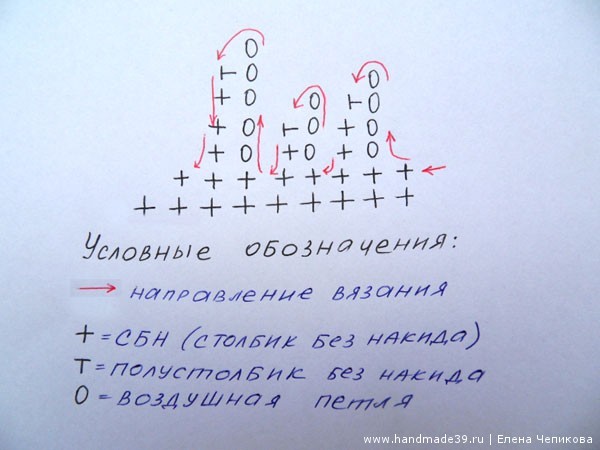 Условные обозначения:
→ направление вязания
+ = СБН (столбик без накида)
т = полустолбик без накида
О = воздушная петля
www.handmade39.ru | Елена Чепикова